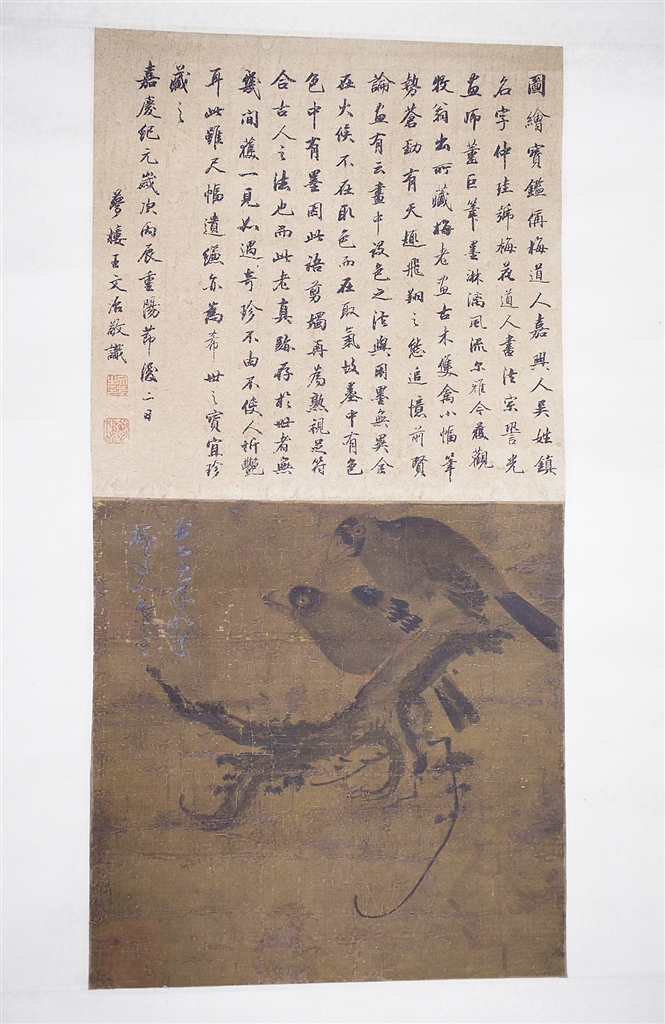 圖繪寶鑑偁梅道人嘉興人吳姓鎮
名字仲珪號梅花道人書法宗䛒光
畫師董巨筆墨淋漓風流尔雅今夜觀
牧翁出所藏梅老畫古木雙禽小幅筆
勢蒼勁有天趣飛翔之態追憶前賢
論畫有云畫中設色之法與用墨無異全
在火候不在取色而在取氣故墨中有色
色中有墨因此語剪燭再為熟視足符
合古人之法也而此老真跡存於世者無
幾間獲一見如遇奇珍不由不使人祈艷
耳此雖尺幅遺縑亦為希世之寶宜珍
藏之
嘉慶紀元歲次丙辰重陽節後二日
夢樓王文治敬識